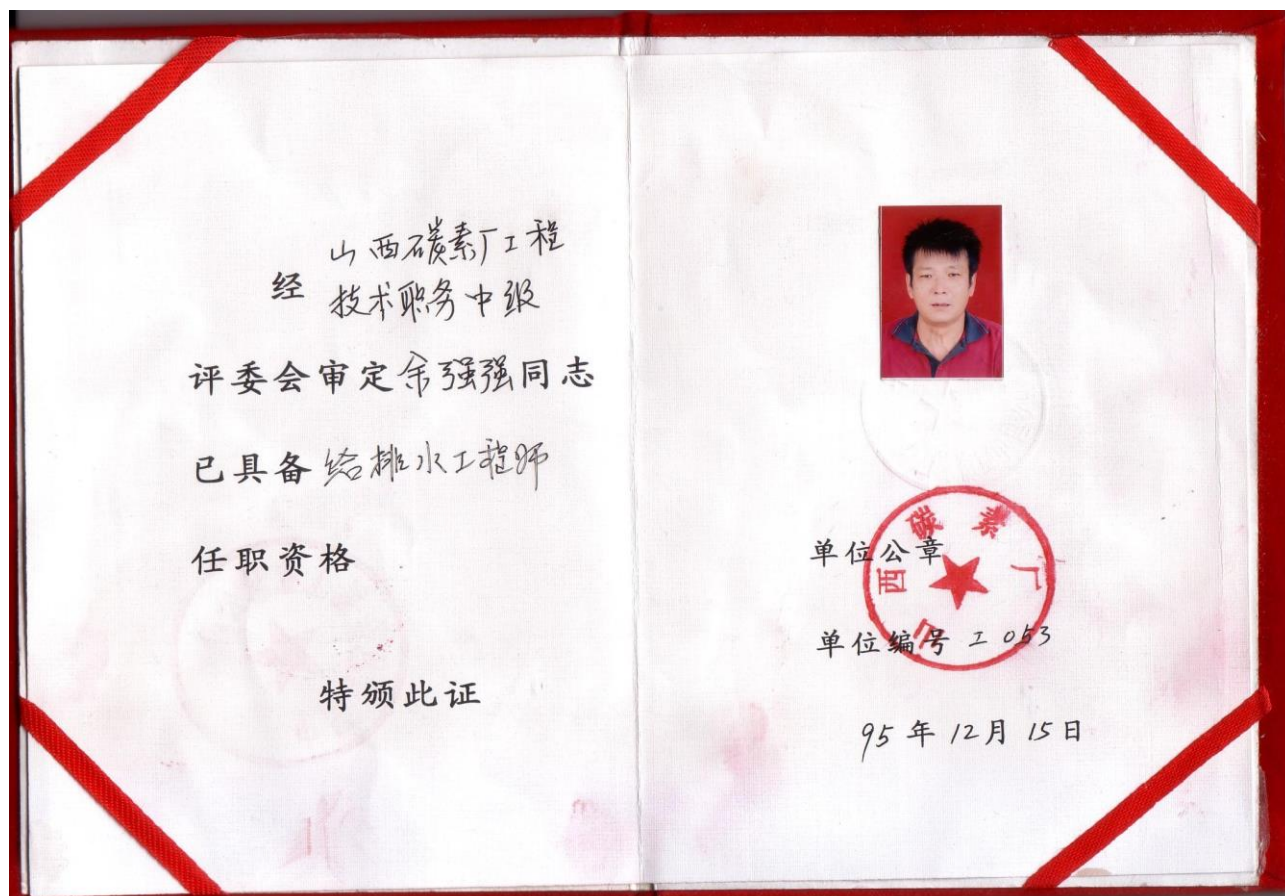 山西碳素厂工程
经 技术职务中级
评委会审定余强强同志
已具备给排水工程师
任职资格
特颁此证
单位公章
山西碳素厂
单位编号 工053
95年12月15日